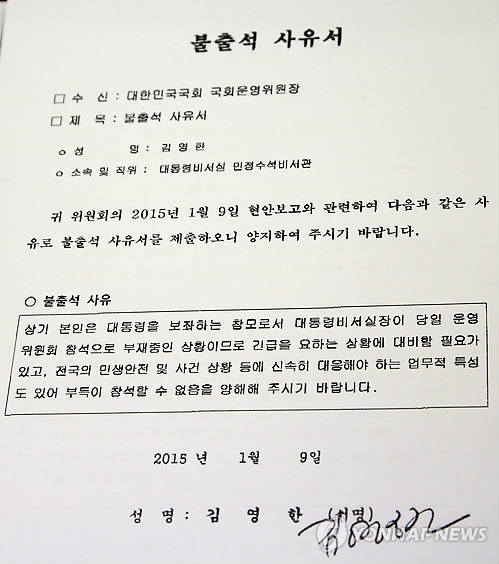 불출석 사유서
□ 수 신 : 대한민국국회 국회운영위원장
□ 제 목 : 불출석 사유서
ㅇ 성 명 : 김 영 한
ㅇ 소속 및 직위 : 대통령비서실 민정수석비서관
귀 위원회의 2015년 1월 9일 현안보고와 관련하여 다음과 같은 사
유로 불출석 사유서를 제출하오니 양지하여 주시기 바랍니다.
○ 불출석 사유
상기 본인은 대통령을 보좌하는 참모로서 대통령비서실장이 당일 운영
위원회 참석으로 부재중인 상황이므로 긴급을 요하는 상황에 대비할 필요가
있고, 전국의 민생안전 및 사건 상황 등에 신속히 대응해야 하는 업무적 특성
도 있어 부득이 참석할 수 없음을 양해해 주시기 바랍니다.
2015 년 1월 9일
성 명 : 김 영 한 (서명)
YONHAP NEWS